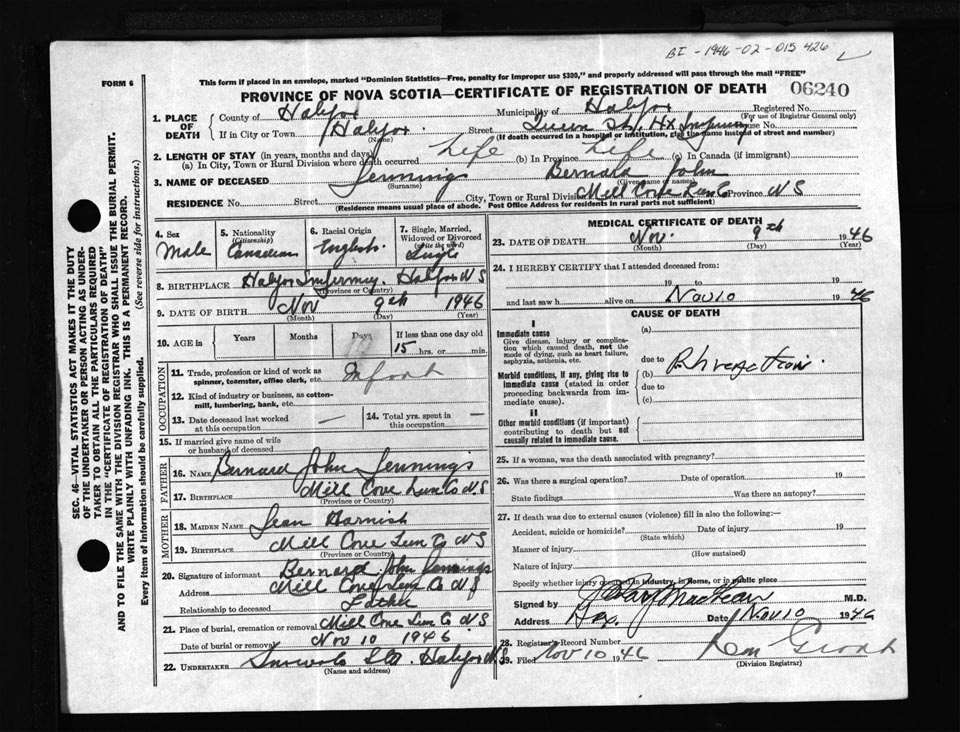 BE - 1946-02-015426
FORM 6
This form if placed in an envelope, marked "Dominion Statistics—Free, penalty for improper use $300," and properly addressed will pass through the mail "FREE"
PROVINCE OF NOVA SCOTIA—CERTIFICATE OF REGISTRATION OF DEATH 06240
1. PLACE OF DEATH County of Halifax Municipality of Halifax Registered No.
(For use of Registrar General only)
If in City or Town Halifax Street Hx Infirmary House No.
(Name) (If death occurred in a hospital or institution, give the name instead of street and number)
2. LENGTH OF STAY (in years, months and days)
(a) In City, Town or Rural Division where death occurred Life (b) In Province Life (c) In Canada (if immigrant)
3. NAME OF DECEASED Jennings Bernard John
(Surname) (Given name or names)
RESIDENCE No. Street City, Town or Rural Division Mill Cove Lun Co Province N S
(Residence means usual place of abode. Post Office Address for residents in rural parts not sufficient)
4. Sex Male
5. Nationality (Citizenship) Canadian
6. Racial Origin English
7. Single, Married, Widowed or Divorced (write the word) Single
8. BIRTHPLACE Halifax Infirmary Halifax N S
(Province or Country)
9. DATE OF BIRTH Nov 9th 1946
(Month) (Day) (Year)
10. AGE in Years Months Days If less than one day old
15 hrs. or min.
OCCUPATION
11. Trade, profession or kind of work as spinner, teamster, office clerk, etc. Infant
12. Kind of industry or business, as cotton-mill, lumbering, bank, etc.
13. Date deceased last worked at this occupation —
14. Total yrs. spent in this occupation —
15. If married give name of wife or husband of deceased
FATHER
16. NAME Bernard John Jennings
17. BIRTHPLACE Mill Cove Lun Co N.S
(Province or Country)
MOTHER
18. MAIDEN NAME Jean Harnish
19. BIRTHPLACE Mill Cove Lun Co N S
(Province or Country)
20. Signature of informant Bernard John Jennings
Address Mill Cove Lun Co N S
Relationship to deceased Father
21. Place of burial, cremation or removal Mill Cove Lun Co N S
Date of burial or removal Nov 10 1946
22. UNDERTAKER Snow & Co Ltd Halifax N.S
(Name and address)
MEDICAL CERTIFICATE OF DEATH
23. DATE OF DEATH Nov. 9th 1946
(Month) (Day) (Year)
24. I HEREBY CERTIFY that I attended deceased from:
19 to 19
and last saw h alive on Nov 10 1946
CAUSE OF DEATH
I
Immediate cause
Give disease, injury or complication which caused death, not the mode of dying, such as heart failure, asphyxia, asthenia, etc.
Morbid conditions, if any, giving rise to immediate cause (stated in order proceeding backwards from immediate cause).
II
Other morbid conditions (if important) contributing to death but not causally related to immediate cause.
(a)
due to
(b) Rh reaction
due to
(c)
25. If a woman, was the death associated with pregnancy?
26. Was there a surgical operation? Date of operation 19
State findings Was there an autopsy?
27. If death was due to external causes (violence) fill in also the following:—
Accident, suicide or homicide? Date of injury 19
(State which)
Manner of injury
(How sustained)
Nature of injury
Specify whether injury occurred in industry, in home, or in public place
Signed by M.D.
Address Hax. Date Nov 10 1946
28. Registrar's Record Number
29. Filed Nov 10 1946
(Division Registrar)
SEC. 46—VITAL STATISTICS ACT MAKES IT THE DUTY
OF THE UNDERTAKER OR PERSON ACTING AS UNDER-
TAKER TO OBTAIN ALL THE PARTICULARS REQUIRED
IN THE "CERTIFICATE OF REGISTRATION OF DEATH"
AND TO FILE THE SAME WITH THE DIVISION REGISTRAR WHO SHALL ISSUE THE BURIAL PERMIT.
WRITE PLAINLY WITH UNFADING INK. THIS IS A PERMANENT RECORD.
Every item of information should be carefully supplied. (See reverse side for instructions.)